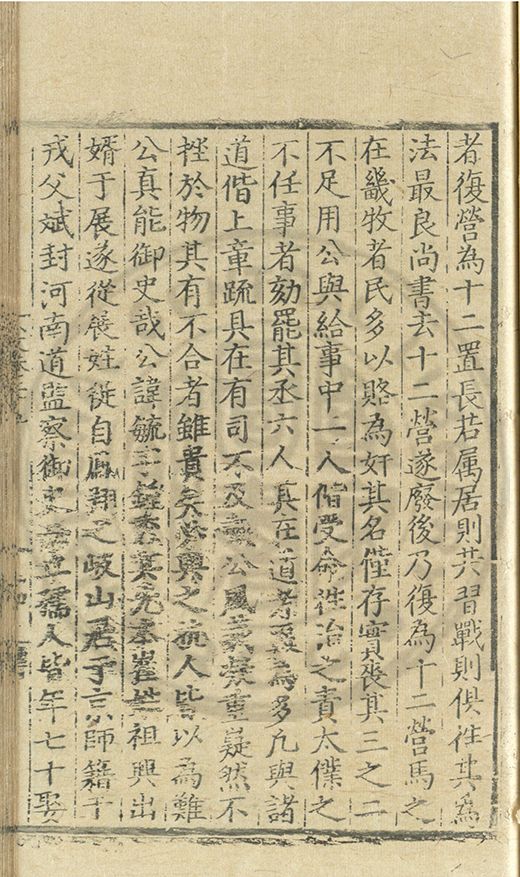 者復營為十二置長若属居則共習戰則俱徃其為
法最良尚書去十二營遂廢後乃復為十二營馬之
在畿牧者民多以賂為奸其名僅存實喪其三之二
不足用公與給事中一人偕受命徃治之責太僕之
不任事者劾罷其丞六人其在道為多凡與諸
道偕上章疏具在有司不及公風重疑然不
挫於物其有不合者雖貴與之抗人皆以為難
公真能御史哉公諱毓字其先本崔姓祖興出
婿于展遂從展姓從自鳳翔之岐山居于京師籍于
戎父斌封河南道監察御史母孺人皆年七十娶